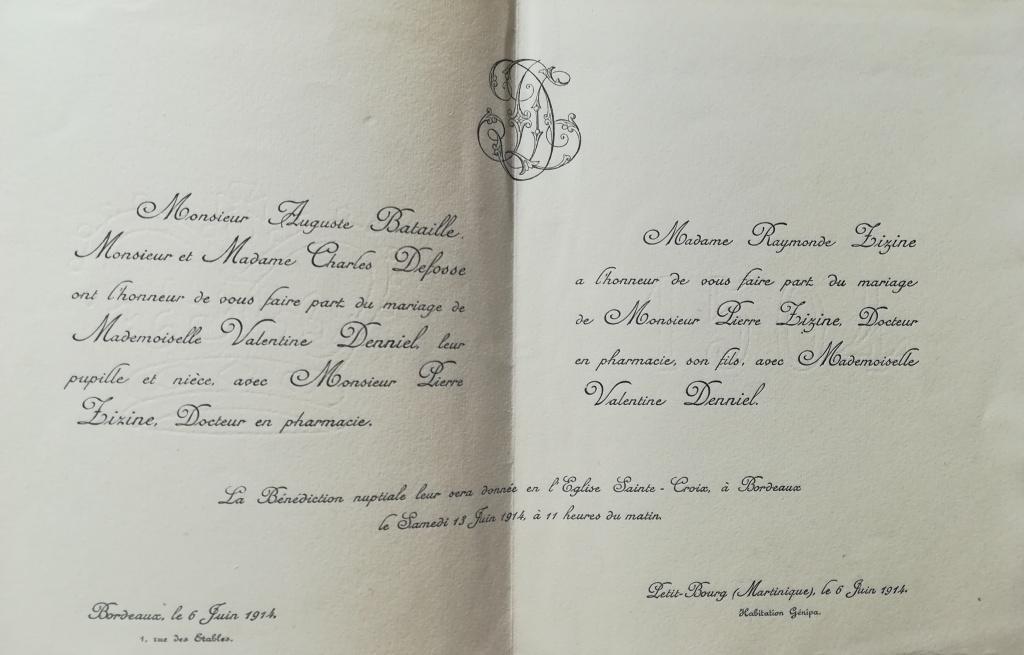 Monsieur Auguste Bataille,
Monsieur et Madame Charles Defosse
ont l'honneur de vous faire part du mariage de
Mademoiselle Valentine Denniel, leur
pupille et nièce, avec Monsieur Pierre
Zizine, Docteur en pharmacie.
Madame Raymonde Zizine
a l'honneur de vous faire part du mariage
de Monsieur Pierre Zizine, Docteur
en pharmacie, son fils, avec Mademoiselle
Valentine Denniel.
La Bénédiction nuptiale leur sera donnée en l'Eglise Sainte-Croix, à Bordeaux
le Samedi 13 Juin 1914, à 11 heures du matin.
Bordeaux, le 6 Juin 1914.
1, rue des Etables.
Petit-Bourg (Martinique), le 6 Juin 1914.
Habitation Génipa.